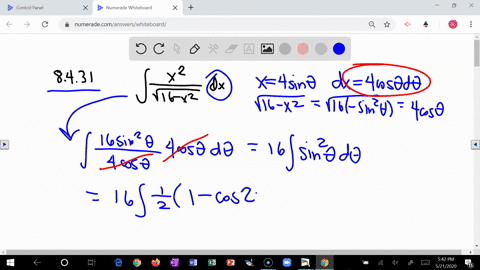 Control Panel
Numerade Whiteboard
numerade.com/answers/whiteboard/
8.4.31 ∫ x²/√16-x² dx x=4sinθ dx=4cosθdθ
√16-x² = √16(-sin²θ) = 4cosθ
∫ 16sin²θ/4cosθ 4cosθ dθ = 16∫sin²θdθ
= 16∫ 1/2 (1-cos2
5:42 PM
5/21/2020